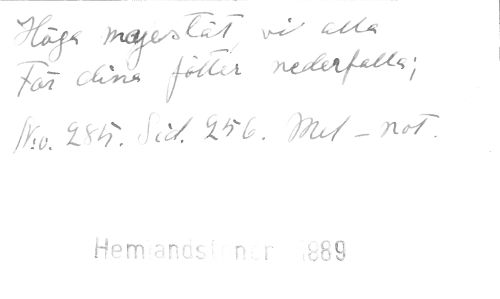 Höga majestät vi alla
För dina fötter nederfalla;
No. 285. Sid. 256. Mel-not.
Hemlandstoner 1889